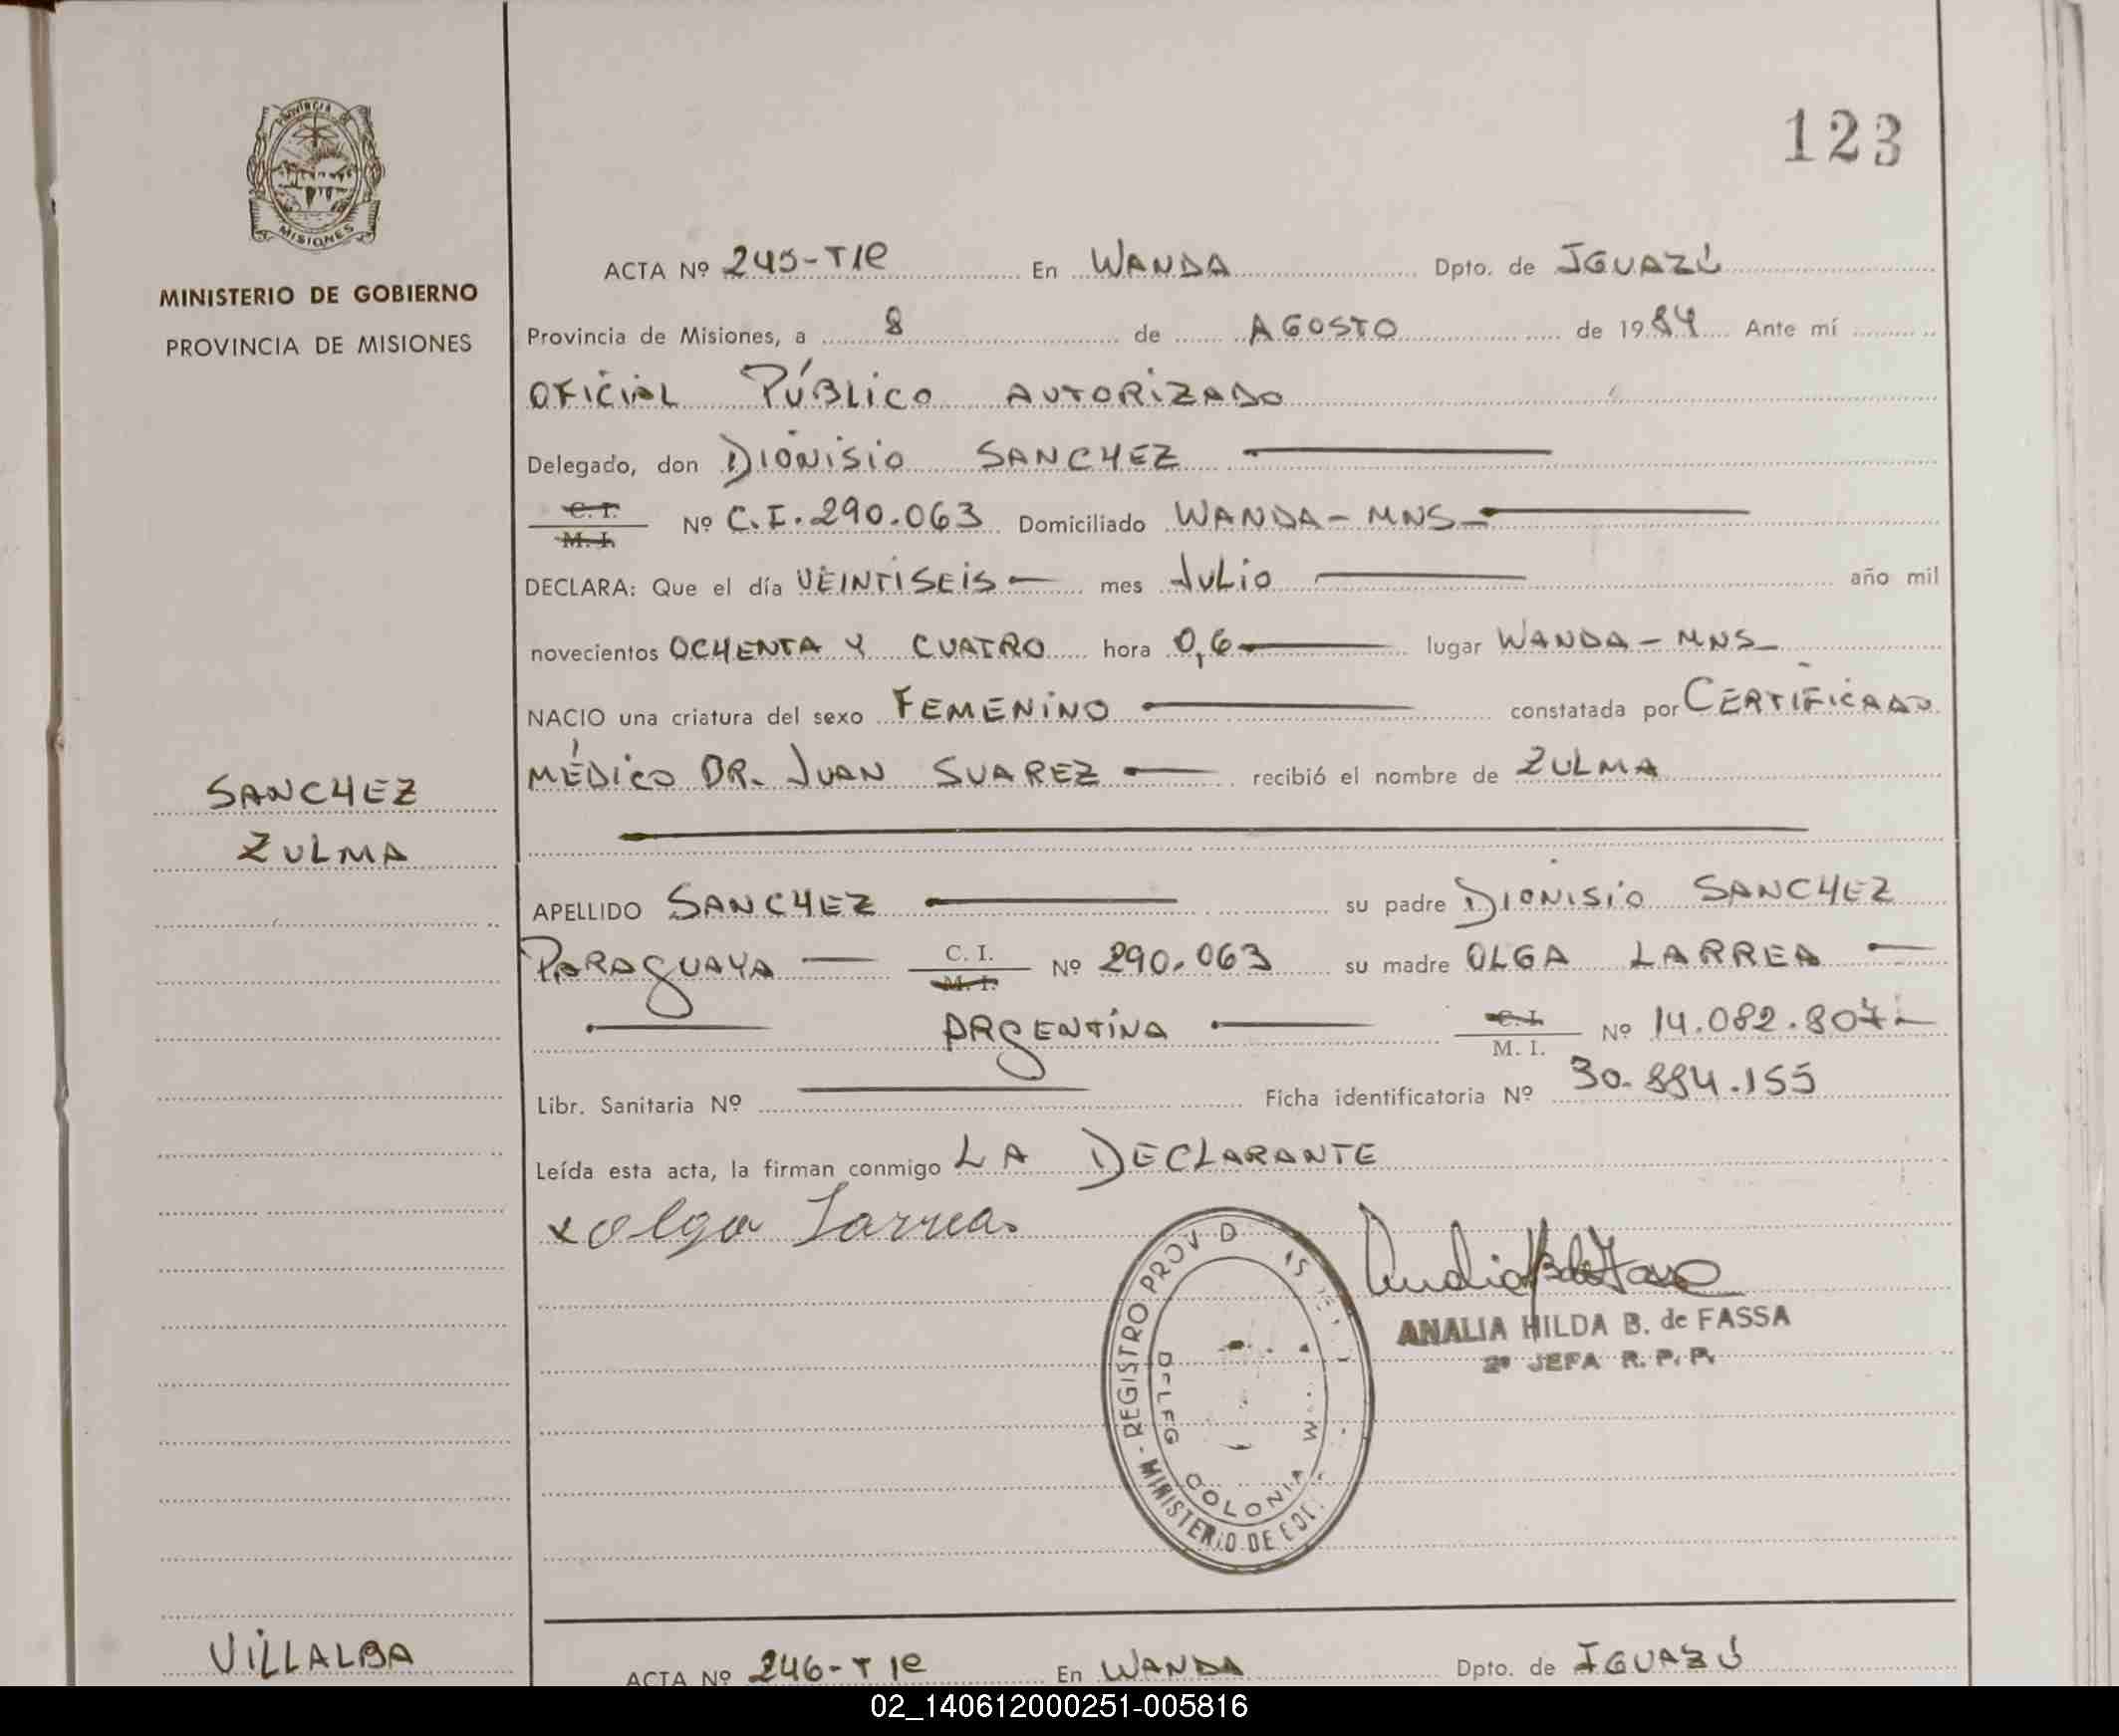 123
PROVINCIA DE
MISIONES
MINISTERIO DE GOBIERNO
PROVINCIA DE MISIONES
ACTA Nº 245-T1º En WANDA Dpto. de IGUAZÚ
Provincia de Misiones, a 8 de AGOSTO de 1984 Ante mí
OFICIAL PÚBLICO AUTORIZADO
Delegado, don DIONISIO SANCHEZ
C. I.
M. I.
Nº C.I. 290.063 Domiciliado WANDA - MNS
DECLARA: Que el día VEINTISEIS mes JULIO año mil
novecientos OCHENTA Y CUATRO hora 0,6 lugar WANDA - MNS
NACIO una criatura del sexo FEMENINO constatada por CERTIFICADO
MÉDICO DR. JUAN SUAREZ recibió el nombre de ZULMA
SANCHEZ
ZULMA
APELLIDO SANCHEZ su padre DIONISIO SANCHEZ
PARAGUAYA C. I. M. I. Nº 290.063 su madre OLGA LARREA
ARGENTINA C. I. M. I. Nº 14.082.807
Libr. Sanitaria Nº Ficha identificatoria Nº 30.884.155
Leída esta acta, la firman conmigo LA DECLARANTE
x Olga Larrea
REGISTRO PROV D
MINISTERIO DE
COLONIA
ANALIA HILDA B. de FASSA
2º JEFA R. P. P.
VILLALBA
ACTA Nº 246-T1º En WANDA Dpto. de IGUAZÚ
02_140612000251-005816